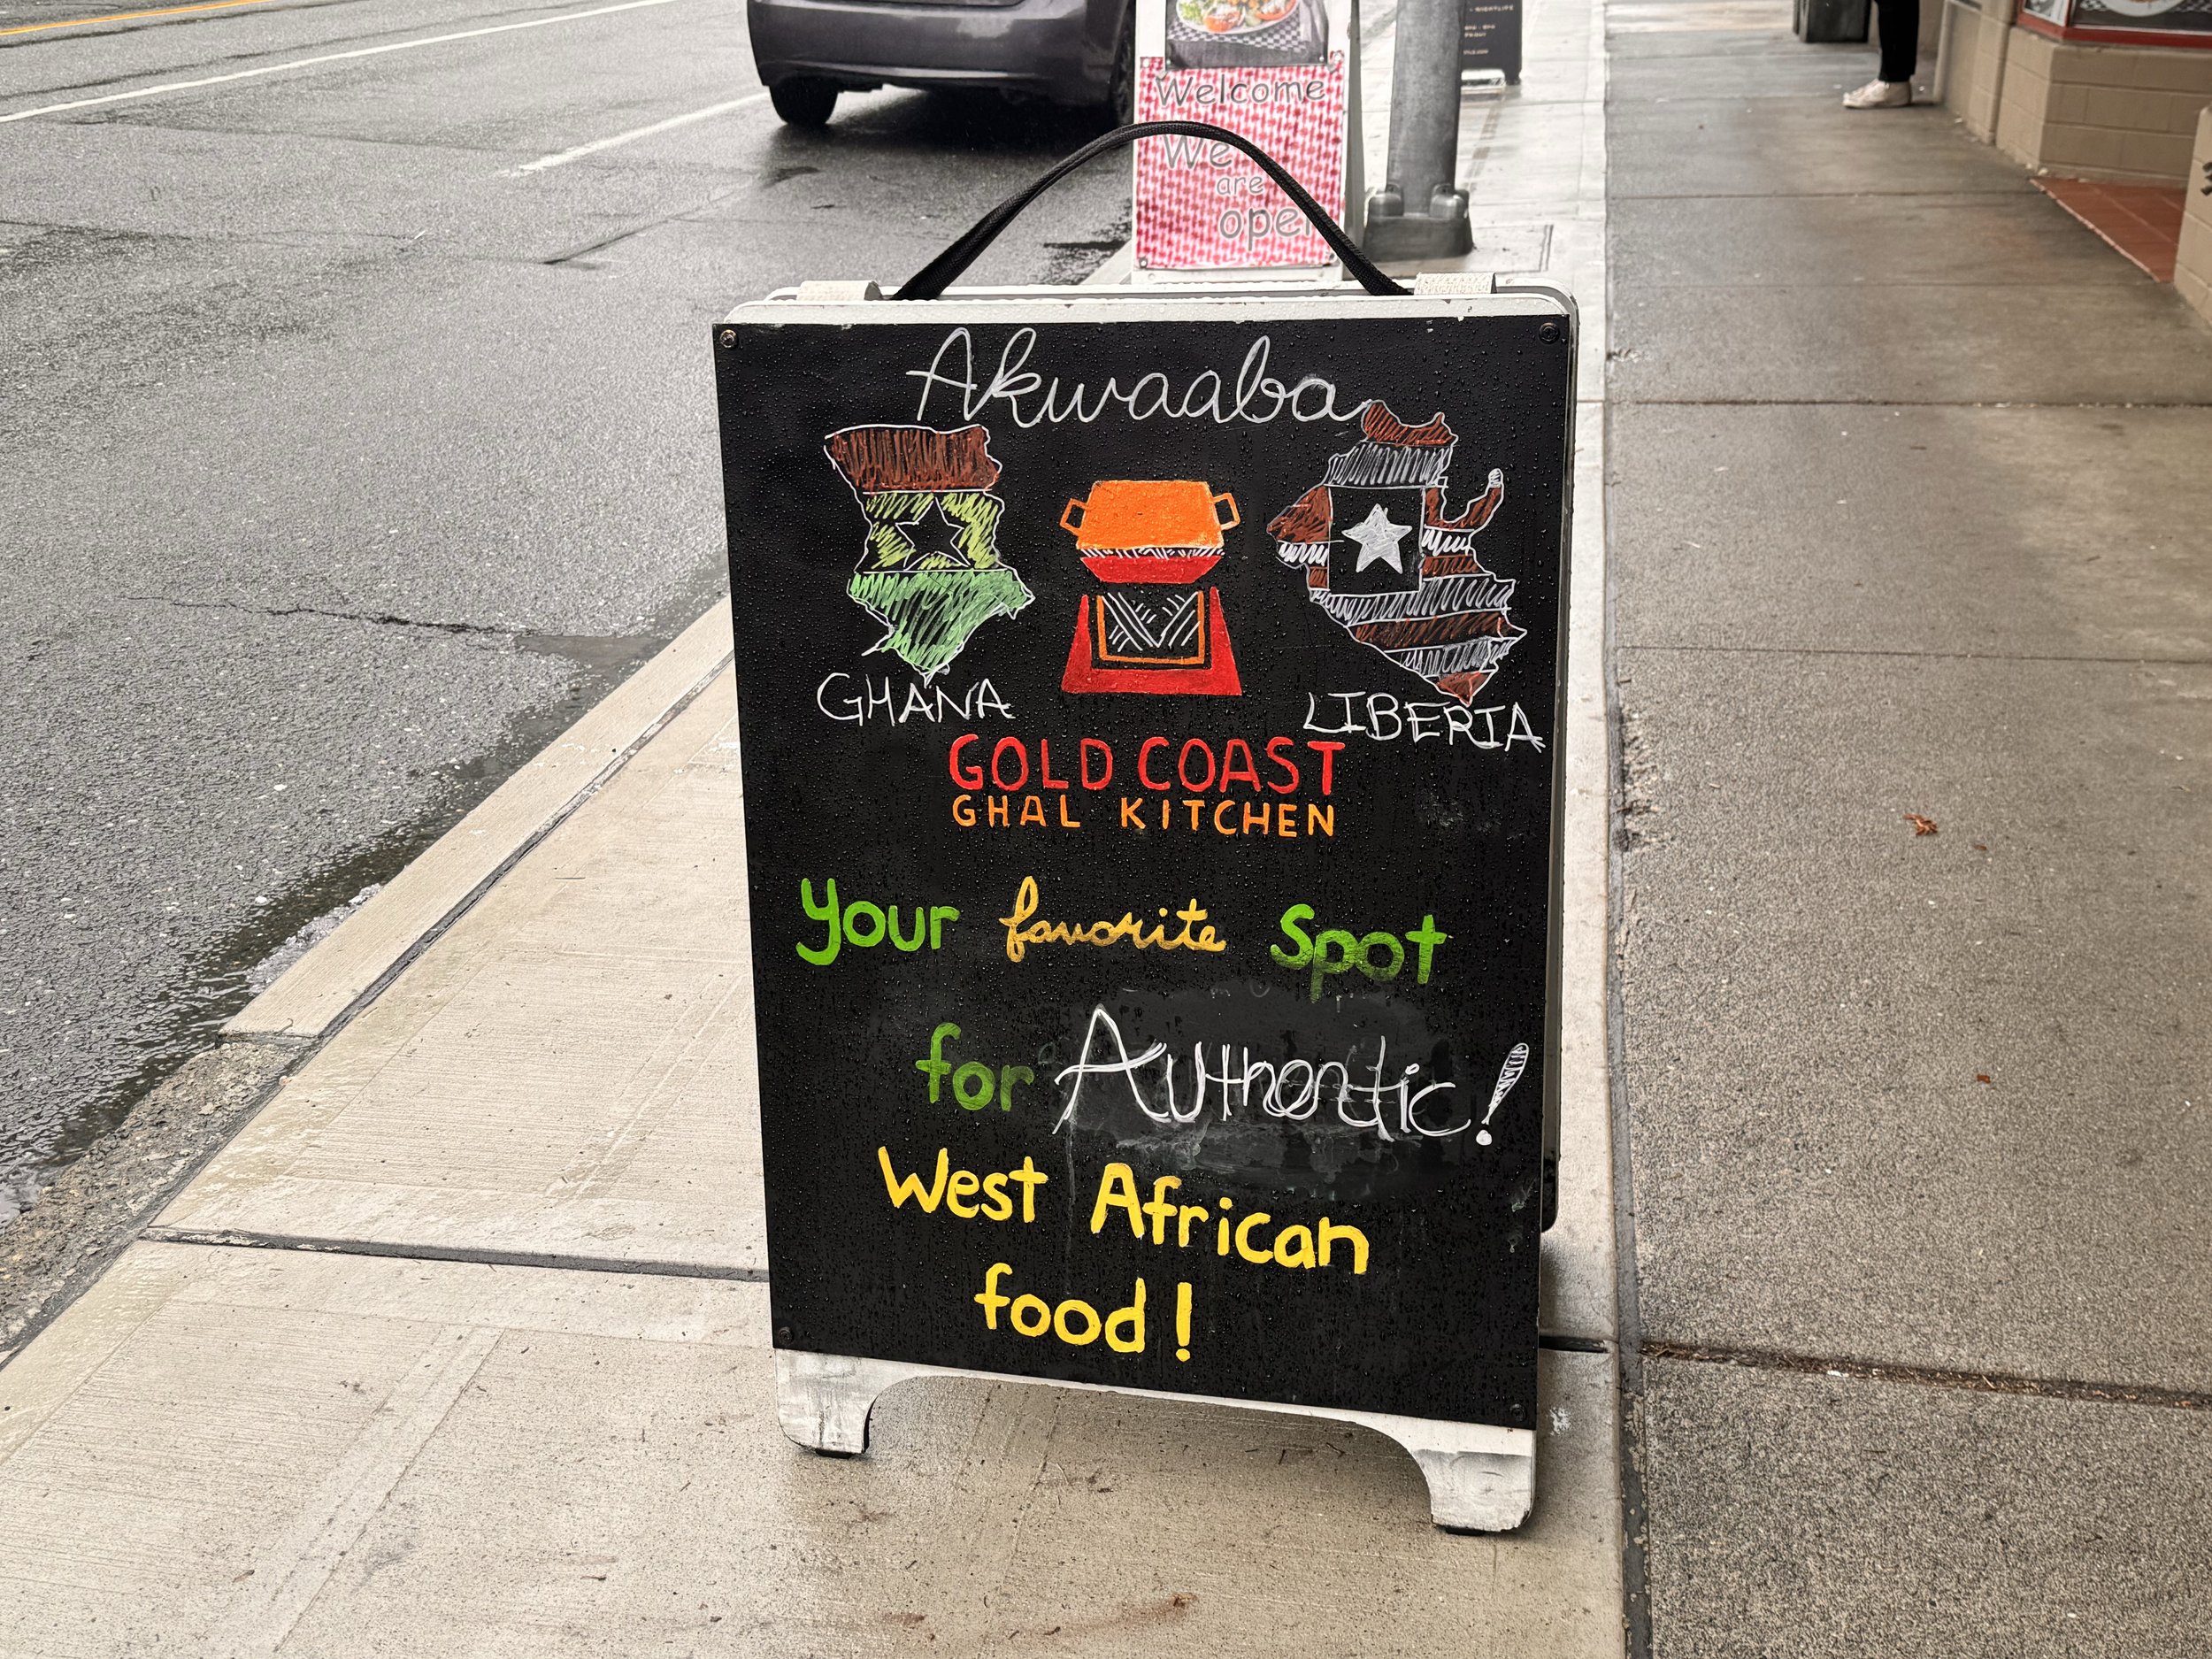 Welcome
We
are
open
Akwaaba
GHANA
LIBERIA
GOLD COAST
GHAL KITCHEN
your favorite spot
for Authentic!
West African
food!